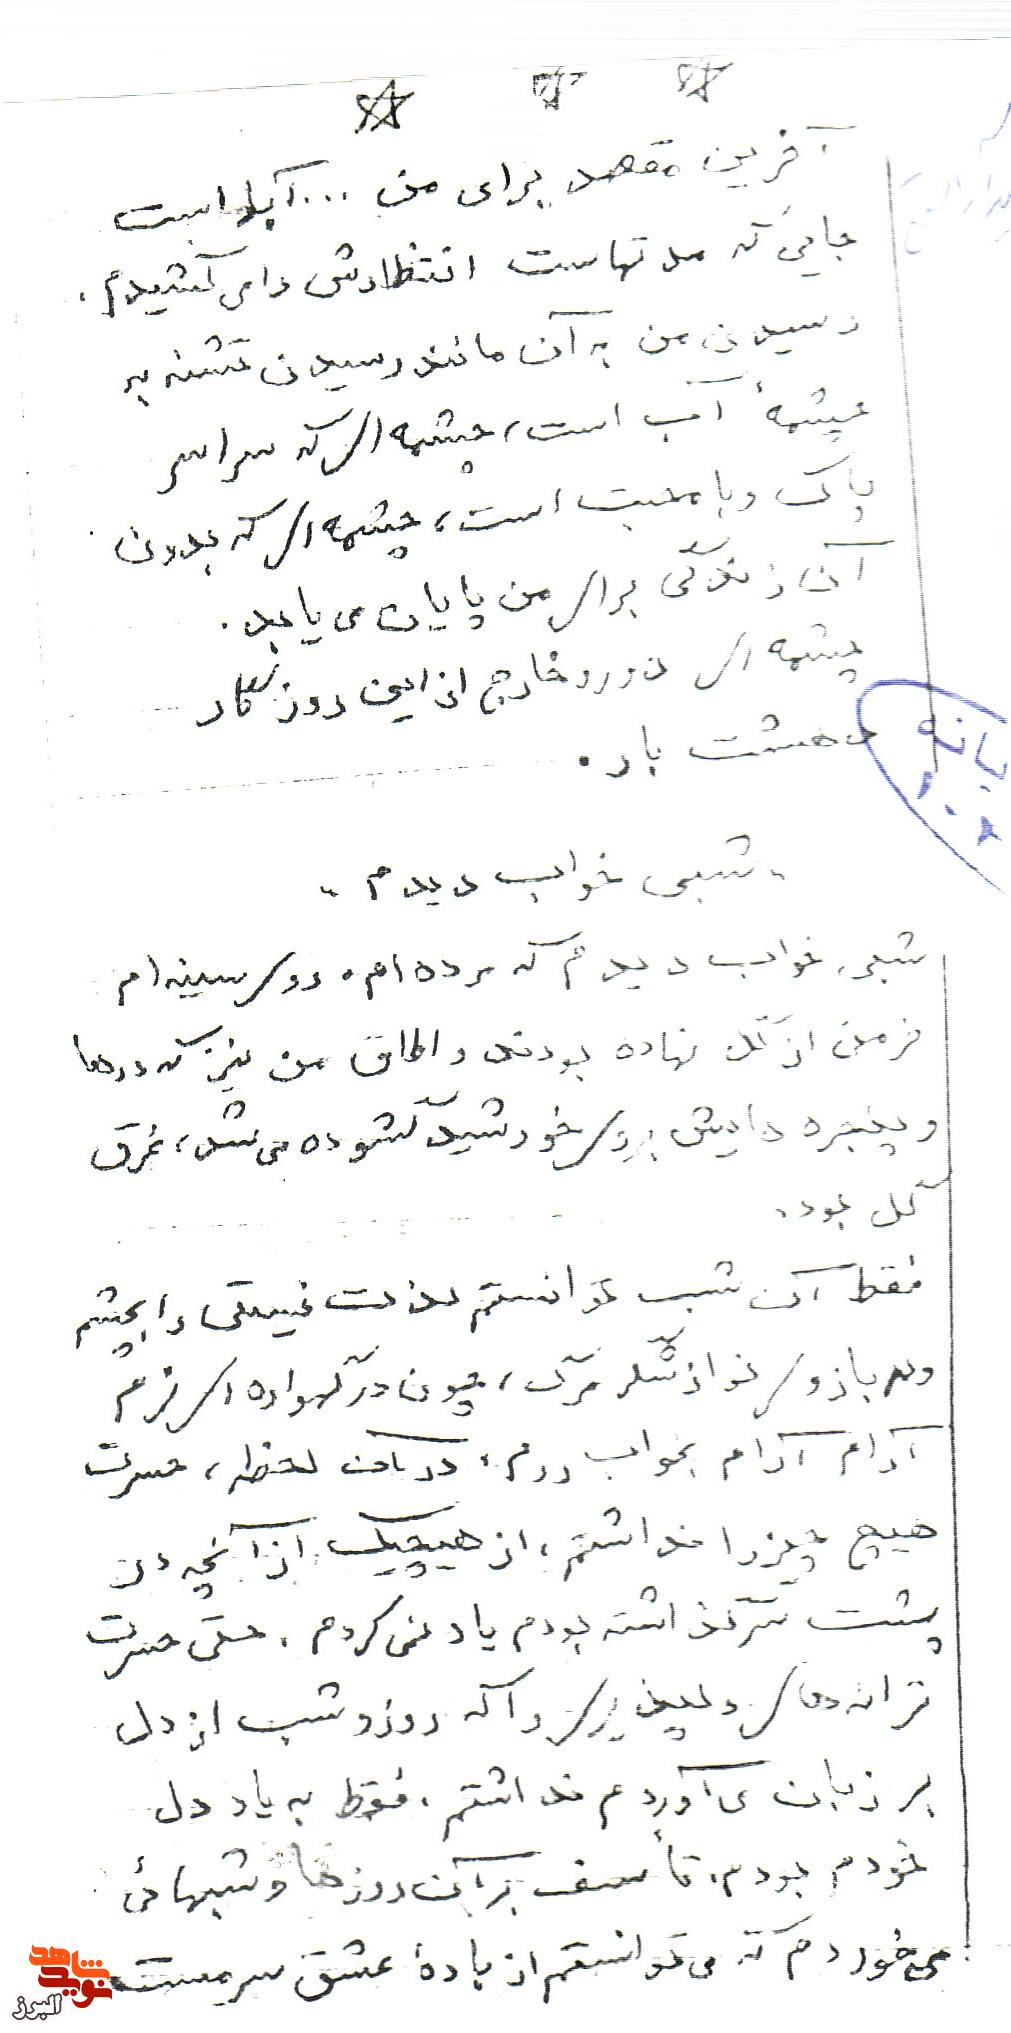 آخرین مقصد برای من ... آنجا است
جایی که مدتهاست انتظارش را می کشیدم.
رسیدن من به آن مانند رسیدن تشنه به
چشمهٔ آب است، چشمه ای که سراسر
پاک و با محبت است، چشمه ای که بدون
آن زندگی برای من پایان می یابد.
چشمه ای دور و خارج از این روزگار
دهشت بار.
"شبی خواب دیدم"
شبی خواب دیدم که مرده ام. روی سینه ام
خرمن از گل نهاده بودند و اطاق من نیز که درها
و پنجره هایش بروی خورشید گشوده می شد، غرق
گل بود.
فقط آن شب توانستم لذت نیستی را بچشم
و در بازوی نوازشگر مرگ، چون در گهواره ای نرم
آرام آرام بخواب روم. در آن لحظه، حسرت
هیچ چیز را نداشتم، از هیچیک از آنچه در
پشت سر گذاشته بودم یاد نمی کردم. حتی حسرت
ترانه های دلپذیری را که روز و شب از دل
بر زبان می آوردم نداشتم. فقط به یاد دل
خودم بودم. تأسف بر آن روزها و شبهائی
می خوردم که می توانستم از بادهٔ عشق سرمست
یانه
شاهد
نوید
البرز